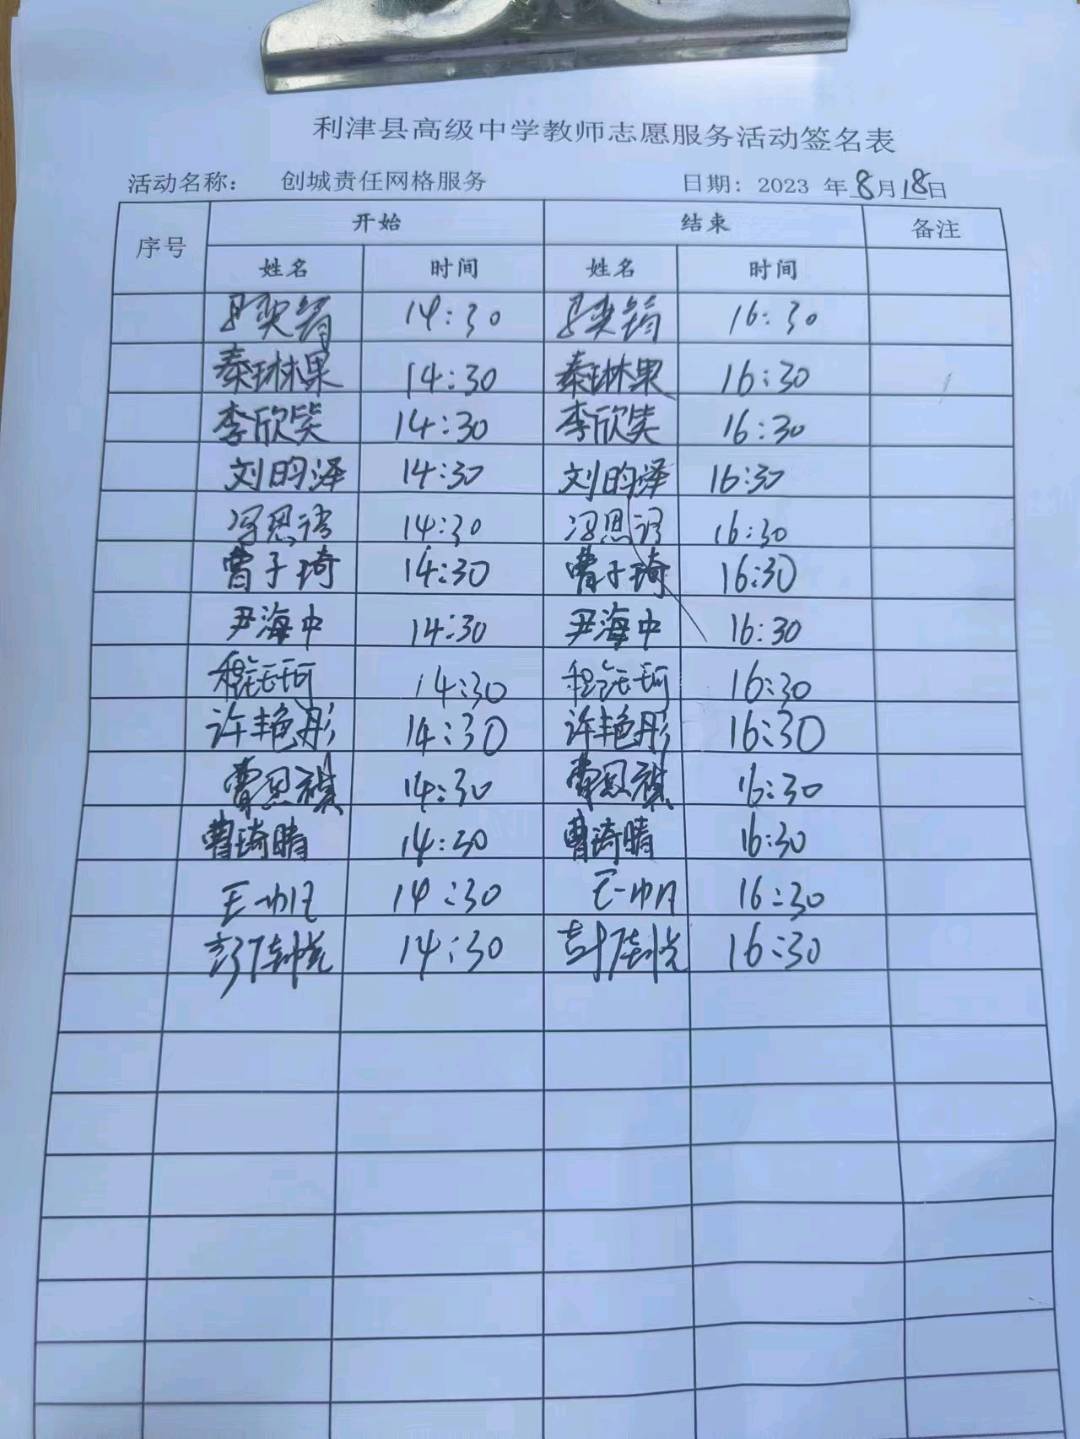 利津县高级中学教师志愿服务活动签名表
活动名称： 创城责任网格服务 日期：2023 年8月18日
序号 开始 结束 备注
姓名 时间 姓名 时间
14:30 16:30
秦琳果 14:30 秦琳果 16:30
李欣笑 14:30 李欣笑 16:30
刘昀泽 14:30 刘昀泽 16:30
冯思 14:30 冯思 16:30
曹子琦 14:30 曹子琦 16:30
尹海中 14:30 尹海中 16:30
程钰珂 14:30 程钰珂 16:30
许艳彤 14:30 许艳彤 16:30
曹恩祺 14:30 曹恩祺 16:30
曹琦晴 14:30 曹琦晴 16:30
王一帆 14:30 王一帆 16:30
彭佳悦 14:30 彭佳悦 16:30